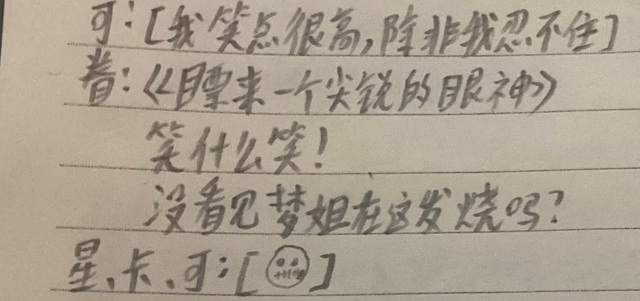 可:[我笑点很高,除非我忍不住]
眷:《瞟来一个尖锐的眼神》
笑什么笑!
没看见梦姐在这发烧吗?
星、卡、可:[]